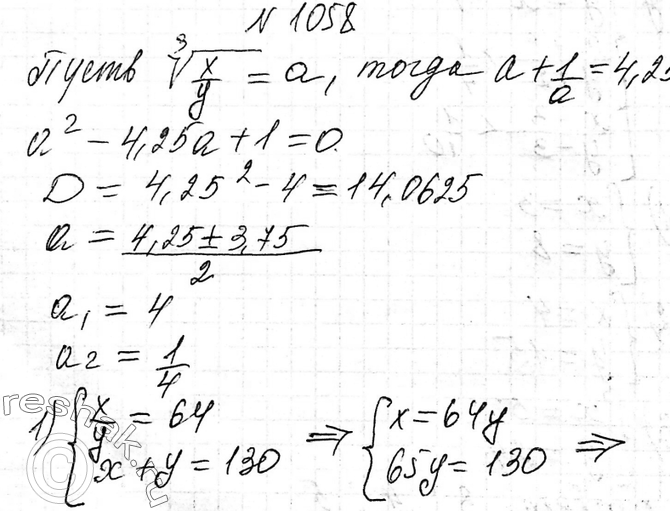 N 1058
Пусть ∛(x/y) = a, тогда a + 1/a = 4,25
a² − 4,25a + 1 = 0
D = 4,25² − 4 = 14,0625
a = (4,25 ± 3,75)/2
a₁ = 4
a₂ = 1/4
1) { x/y = 64 ⇒ { x = 64y
x + y = 130 65y = 130 ⇒